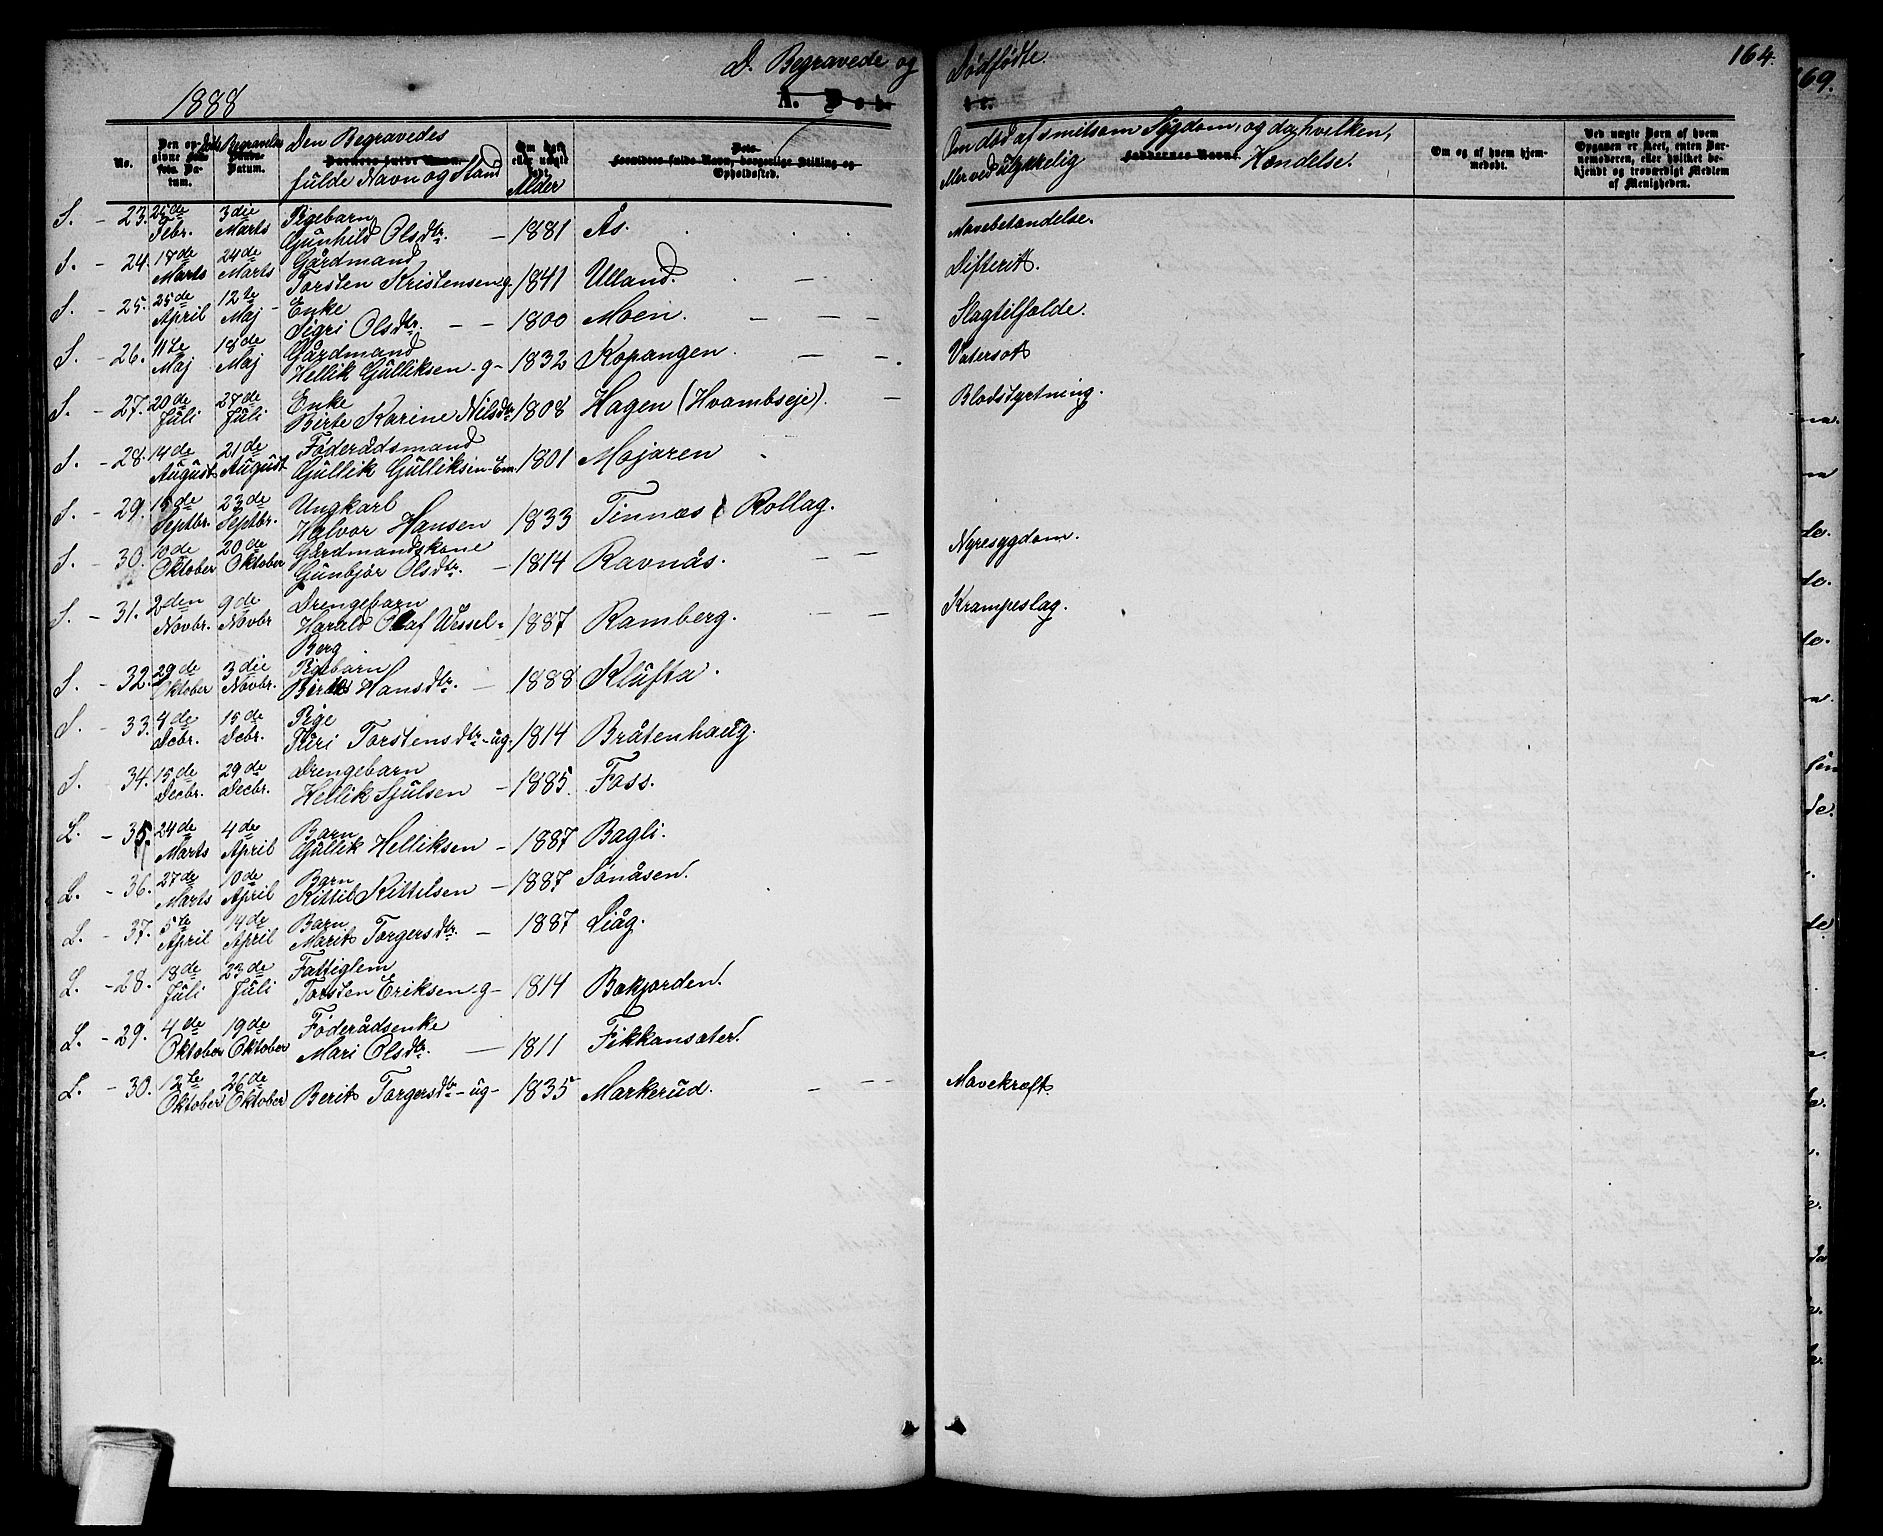 D. Begravede og Dødfødte.
164.
169.
1888
A. Dob
te.
No.
Den op-
givne
fots. Da-
tum.
Døds
Begravelses
Daabs-
Datum.
Den Begravedes
Barnets fulde Navn.
fulde Navn og Stand
Om født
eller uægte
født.
Alder
Dets
Forældres fulde Navn, borgerlige Stilling og
Opholdssted.
Om død af smitsom Sygdom, og da hvilken,
Faddernes Navne.
eller ved ulykkelig Hændelse.
Om og af hvem hjem-
medøbt.
Ved uægte Barn af hvem
Opgaven er skeet, enten Bar-
nemoderen, eller hvilket be-
kjendt og troværdigt Medlem
af Menigheden.
S. - 23. 25de Febr. 3die Marts Pigebarn
Gunhild Olsdtr. - 1881 Ås. Mavebetændelse.
S. - 24. 18de Marts 24de Marts Gårdmand
Torsten Kristensen g. 1841 Ulland. - Difterit.
S. - 25. 25de April 12te Maj - Enke
Sigri Olsdtr. - - 1800 Moen. - - - Slagtilfælde.
S. - 26. 11te Maj 18de Maj Gårdmand
Hellik Gulliksen - g - 1832 Kopangen. - - Vatersot
S. - 27. 20de Juli 27de Juli Enke
Birte Karine Nilsdtr. 1808 Hagen (Hvambseje). - Blodstyrtning.
S. - 28. 14de August 21de August Føderådsmand
Gullik Gulliksen - Em. 1801 Mojaren
S. - 29. 15de Septbr. 23de Septbr. Ungkarl
Halvor Hansen 1833 Tinnæs i Rollag.
S. - 30. 10de Oktober 20de Oktober Gårdmandskone
Gunbjør Olsdtr. - 1814 Ravnås. - - Nyresygdom.
S. - 31. 2den Novbr. 9de Novbr Drengebarn
Harald Olaf Wessel - 1887 Ramberg. - - Krampeslag.
Berg
S. - 32. 29de Oktober 3die Novbr. Pigebarn
Birte Hansdtr. - 1888 Klufta.
S. - 33. 4de Decbr. 15de Decbr. Pige
Turi Torstensdtr. - ug. 1814 Bråtenhaug.
S. - 34. 15de Decbr. 29de Decbr. Drengebarn
Hellik Sjulsen - 1885. Foss.
L. - 35. 24de Marts 4de April Barn
Gullik Helliksen - 1887 Bagli.
L. - 36. 27de Marts 10de April Barn
Kittil Kittelsen - 1887 Sønåsen.
L. - 37. 5te April 14de April Barn
Marit Torgersdtr. - 1887 Liåg.
L. - 28. 18de Juli 23de Juli Fattiglem
Torsten Eriksen - g - 1814 Bækjorden.
L. - 29. 4de Oktober 19de Oktober Føderådsenke
Mari Olsdtr. - 1811 Fikkansæter.
L. - 30. 12te Oktober 26de Oktober Berit Torgersdtr. - ug - 1835 Markerud. - - Mavekræft.